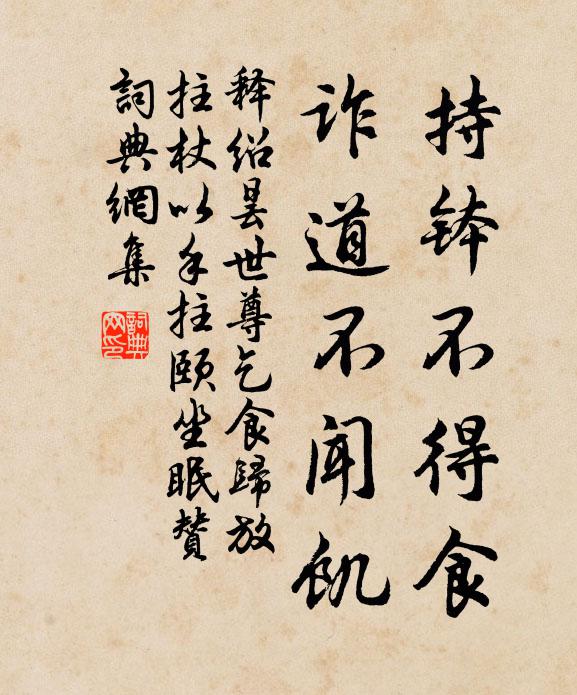 持鉢不得食
诈道不闻飢
释绍昙世尊乞食歸放
拄杖以手拄頤坐眠赞
詞典網集
詞典